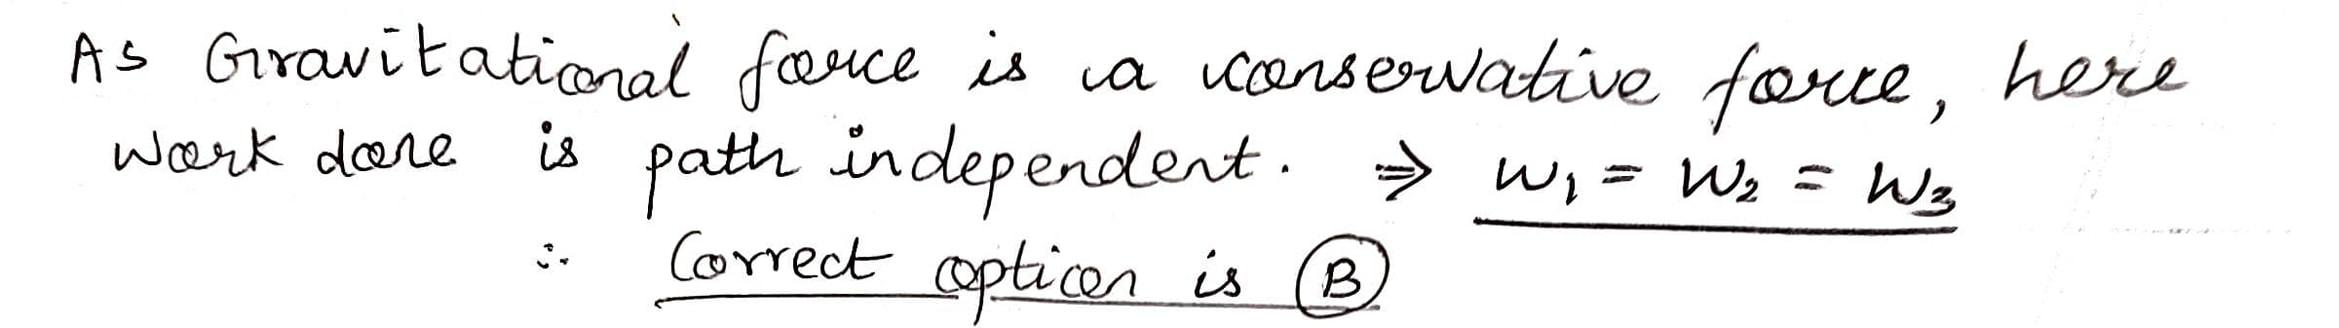 As Gravitational force is a conservative force, here
work done is path independent. ⇒ W₁ = W₂ = W₃
∴ Correct option is Ⓑ